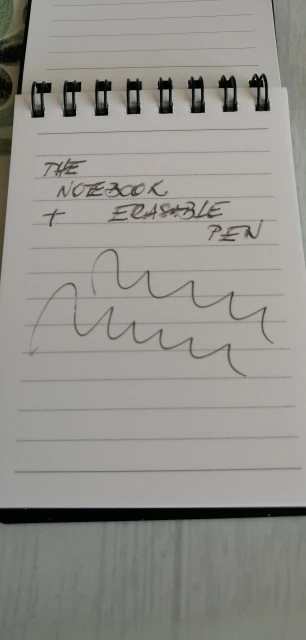 THE
NOTEBOOK
+ ERASABLE
PEN